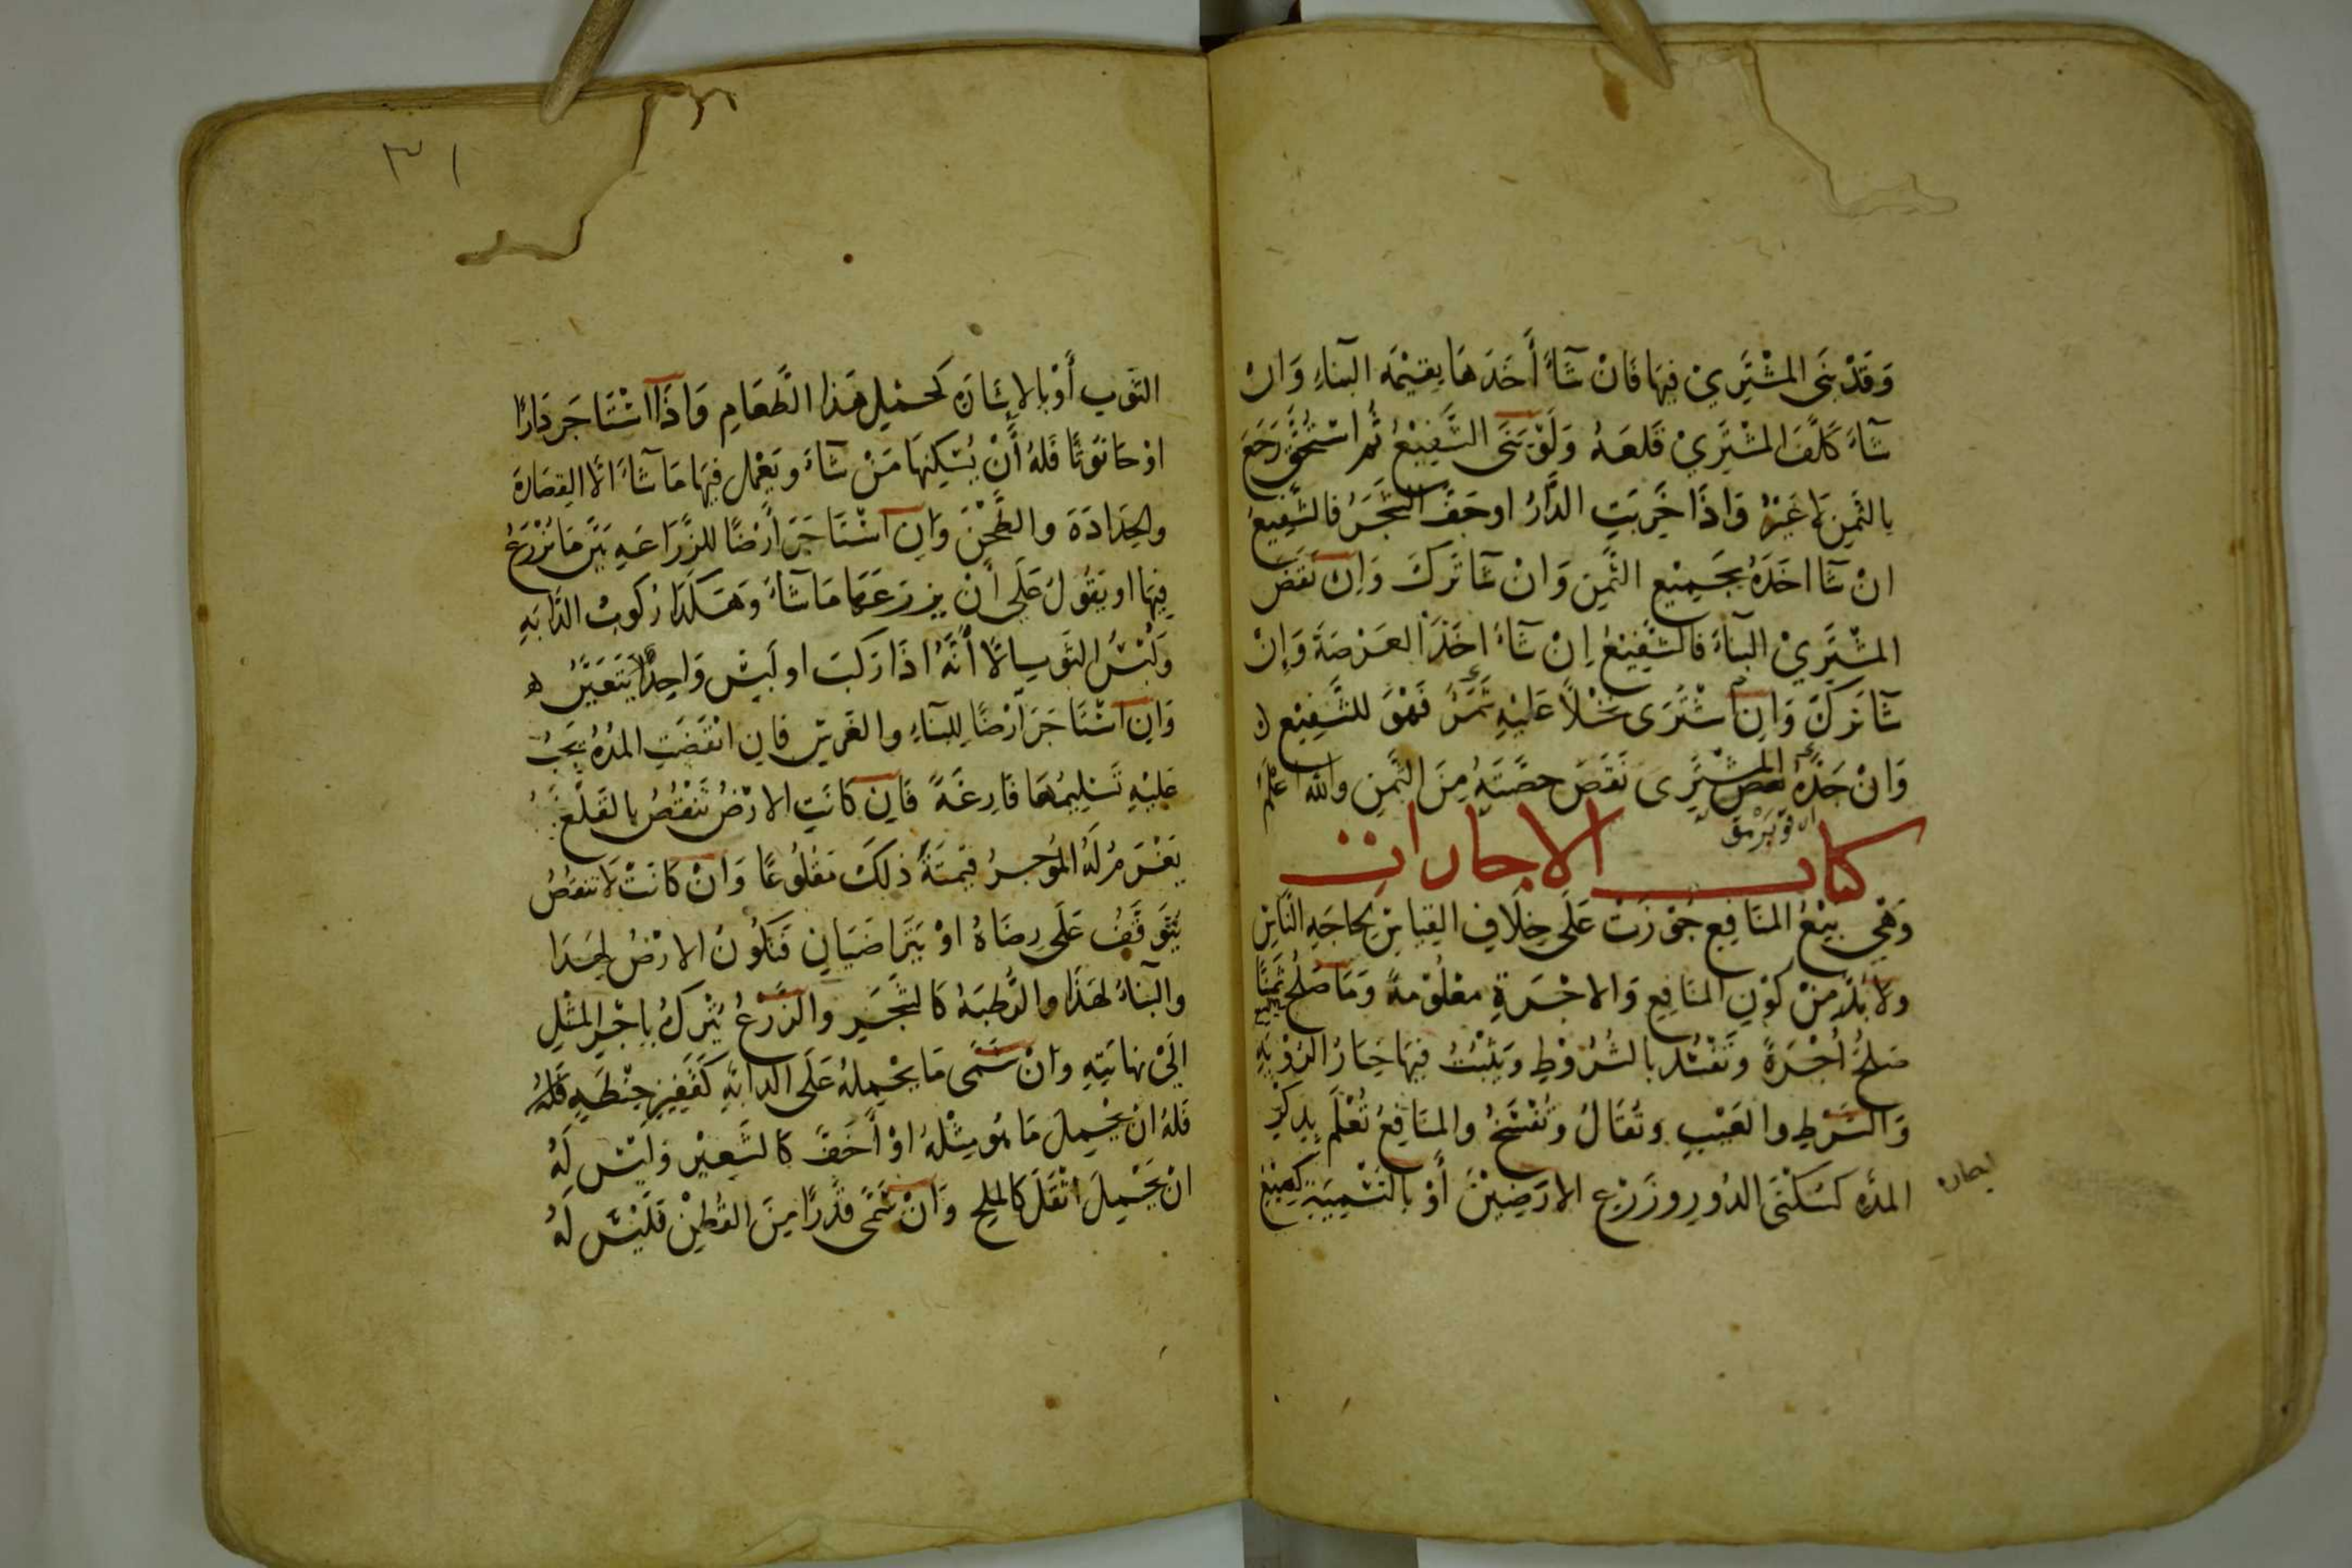 وَقَدْ بَنَى المُشْتَرِيْ فِيهَا فَانْ شَآءَ أَخَذَهَا بِقِيْمَهِ البِنَآءِ وَانْ
شَآءَ كَلَّفَ المُشْتَرِيْ قَلعَهُ وَلَوْ بَنَى الشَّفِيْعُ ثُم اسْتُحِقَّ رَجَعَ
بِالثَّمَنِ لَا غَيْرُ وَاذَا خَرِبَتِ الدَّارُ او جَفَّ الشَّجَرُ فالشَّفِيعُ
انْ شَا اخَذَهُ بِجَمِيْعِ الثَّمَنِ وَانْ شَا تَرَكَ وَاِنْ نَقَضَ
المُشْتَرِيْ البِنَآءَ فالشَّفِيْعُ اِنْ شَآءَ اخَذَ العَرْصَةَ وَاِنْ
شَآ تَركَ وَاِنْ اشْتَرَى نَخْلاً عَلَيْهِ ثَمَرٌ فَهُوَ للشَّفِيْعِ
وَانْ جَذَّهُ المشْتَرِى نَقَصَ حِصَّتَهُ مِنَ الثَّمَنِ والله اعلَمُ
كتاب الاجارات
وَهْيَ بَيْعُ المنَافِعِ جُوِّزَتْ عَلَى خِلَافِ القِيَاسِ لِحاجَهِ النَّاسِ
ولا بُدَّ مِنْ كَوْنِ المنَافِعِ وَالاجْرَةِ مَعْلُوْمةً وَمَا صَلُحَ ثَمَنًا
صَلُحَ أُجْرَةً وَتَفْسُد بالشُرُوْطِ وَيَثْبُتُ فِيهَا خِيَارُ الرُؤْيَهِ
وَالشَرْطِ والعَيْبِ وَتُقَالُ وَتُفْسَخُ والمنَافِعُ تُعْلَم بِذِكْرِ
المدَّهِ كَسُكْنَى الدُورِ وزَرْعِ الارَضِيْنَ أَوْ بِالتَسْمِيَةِ كَصَبْغِ
الثَوبِ أَوْ بالاشَارَهِ كَحَمْلِ هَذا الطَّعَامِ وَاذَا اسْتَاجَر دَارًا
اوْ حَانُوْتًا فَلهُ أَنْ يُسْكِنهَا مَنْ شَآءَ ويَعْمَل فِيهَا مَا شَآءَ الَّا القِصَارَة
والحِدَادَةَ والطَّحْنَ وَاِن اسْتَاجَرَ أَرْضًا للزَّرَاعَهِ بَيَّنَ مَا يُزْرَعُ
فِيهَا او يَقُولُ عَلَى أَنْ يزرَعَهَا مَا شَآءَ وَهَكَذَا رُكوبُ الدَّابَهِ
وَلُبْسُ الثَوبِ الَّا أَنَّهُ اذَا رَكبَ او لَبِسَ وَاحِدٌ يَتَعَيَّنُ ه
وَاِن اسْتَاجَرَ أَرْضًا لِلبِنَآءِ والغَرْسِ فَاِن انْقَضَتِ المدَّهُ يَجِبُ
عَليْهِ تَسْلِيمُهَا فَارِغَةً فَاِن كَانَتِ الارْضُ تَنْقُصُ بالقَلْعِ
يَغْرَمُ لَهُ المُوجِرُ قِيْمَةَ ذلِكَ مَقْلُوْعًا وَانْ كَانَتْ لَا تنقصُ
يَتَوَقَّفُ عَلَى رِضَاهُ اوْ يَتَرَاضَيَانِ فَتَكُونُ الارْضُ لِهَذا
والبِنَاءُ لِهَذَا والرَّطبَهُ كَالشَّجَرِ والزَّرْعُ يُتْرَكُ بِاجْرِ المثْلِ
اِلَىْ نِهَايَتِهِ وانْ سَمَّى مَا يَحْمِلهُ عَلَى الدابَّهِ كَقَفِيزِ حِنْطَهٍ فَلهُ
فَلهُ انْ يَحْمِلَ مَا هُو مِثْلهُ اوْ أَخَفُّ كَالشَّعِيْرِ وَلَيْسَ لَهُ
انْ يَحْمِلَ اثْقَلَ كَالمِلحِ وَانْ سَمَّى قَدْرًا مِنَ القُطْنِ فَلَيْسَ لَهُ
٣١